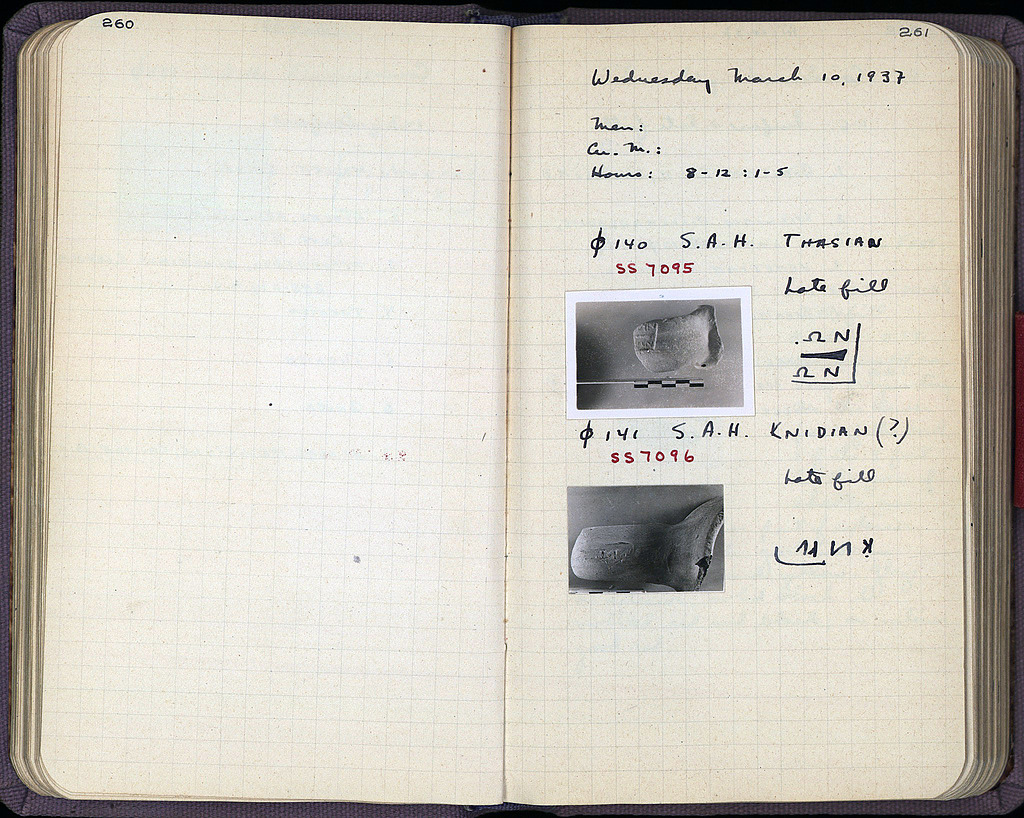 260
261
Wednesday March 10, 1937
Men:
Cu. M.:
Hours: 8-12 : 1-5
ϕ 140 S.A.H. THASIAN
SS 7095
Late fill
ϕ 141 S.A.H. KNIDIAN (?)
SS 7096
Late fill